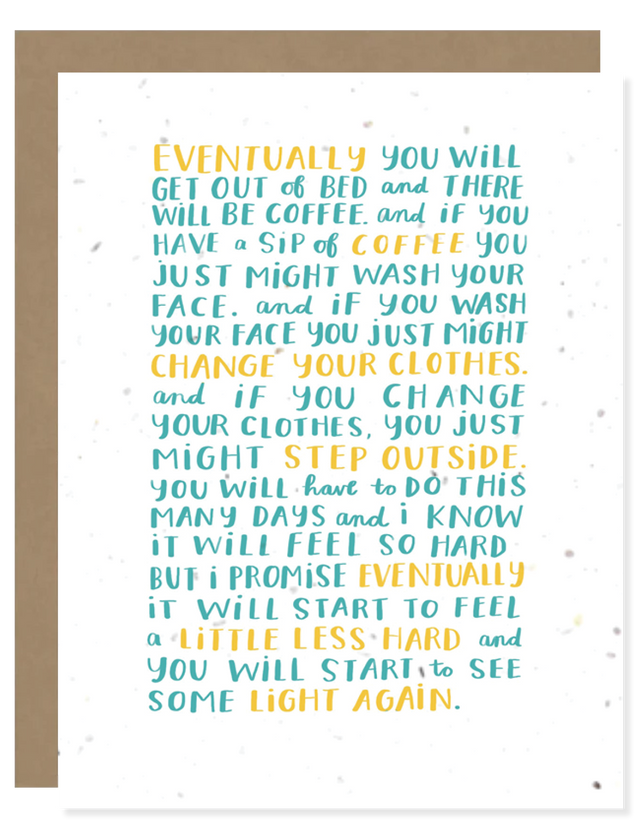 EVENTUALLY YOU WiLL
GET OUT of BED and THERE
WiLL BE COFFEE. and iF YOU
HAVE a SiP of COFFEE YOU
JUST MiGHT WASH YOUR
FACE. and iF YOU WASH
YOUR FACE YOU JUST MiGHT
CHANGE YOUR CLOTHES.
and iF YOU CHANGE
YOUR CLOTHES, YOU JUST
MiGHT STEP OUTSiDE.
YOU WiLL have to DO THiS
MANY DAYS and i KNOW
iT WiLL FEEL SO HARD
BUT i PROMiSE EVENTUALLY
iT WiLL START TO FEEL
a LiTTLE LESS HARD and
YOU WiLL START to SEE
SOME LiGHT AGAiN.